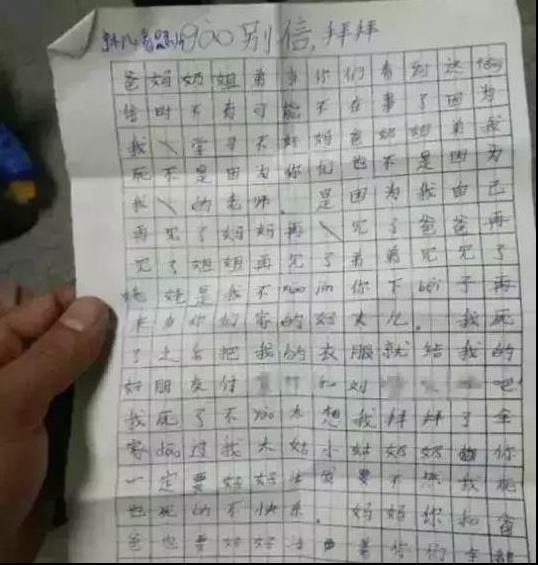 900别信,拜拜
爸妈奶姐弟当你们看到这
信时不有可能不在事了因为
我\学习不好妈爸奶姐弟我
死不是因为你们也不是因为
我\的老师。是因为我自己
再见了妈妈再\见了爸爸再
见了姐姐再见了弟弟见见了
是我不 你下bèi子再
你们家的好大儿。我死
了之后把我的衣服就给我的
好朋友付 和刘 吧
我死了不yào太想我拜拜了全
家 过我大姑小姑奶奶 你
一定要好好活 要不然我死
也死的不快乐。妈妈你和爸
爸也要好好活 着你们全